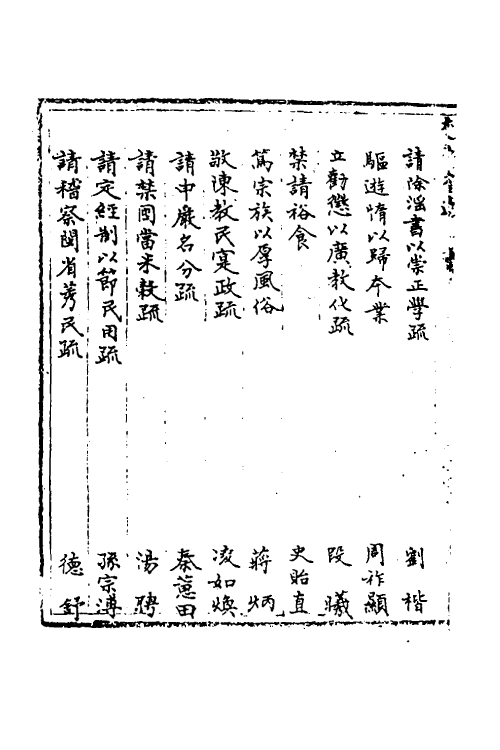 請除淫書以崇正學疏 劉楷
驅遊惰以歸本業 周祚顯
立勸懲以廣教化疏 段曦
禁請裕食 史貽直
篤宗族以厚風俗 蔣炳
敬陳教民寔政疏 凌如煥
請申嚴名分疏 秦蕙田
請禁囤當米穀疏 湯聘
請定經制以節民用疏 孫宗溥
請稽察閩省莠民疏 德舒